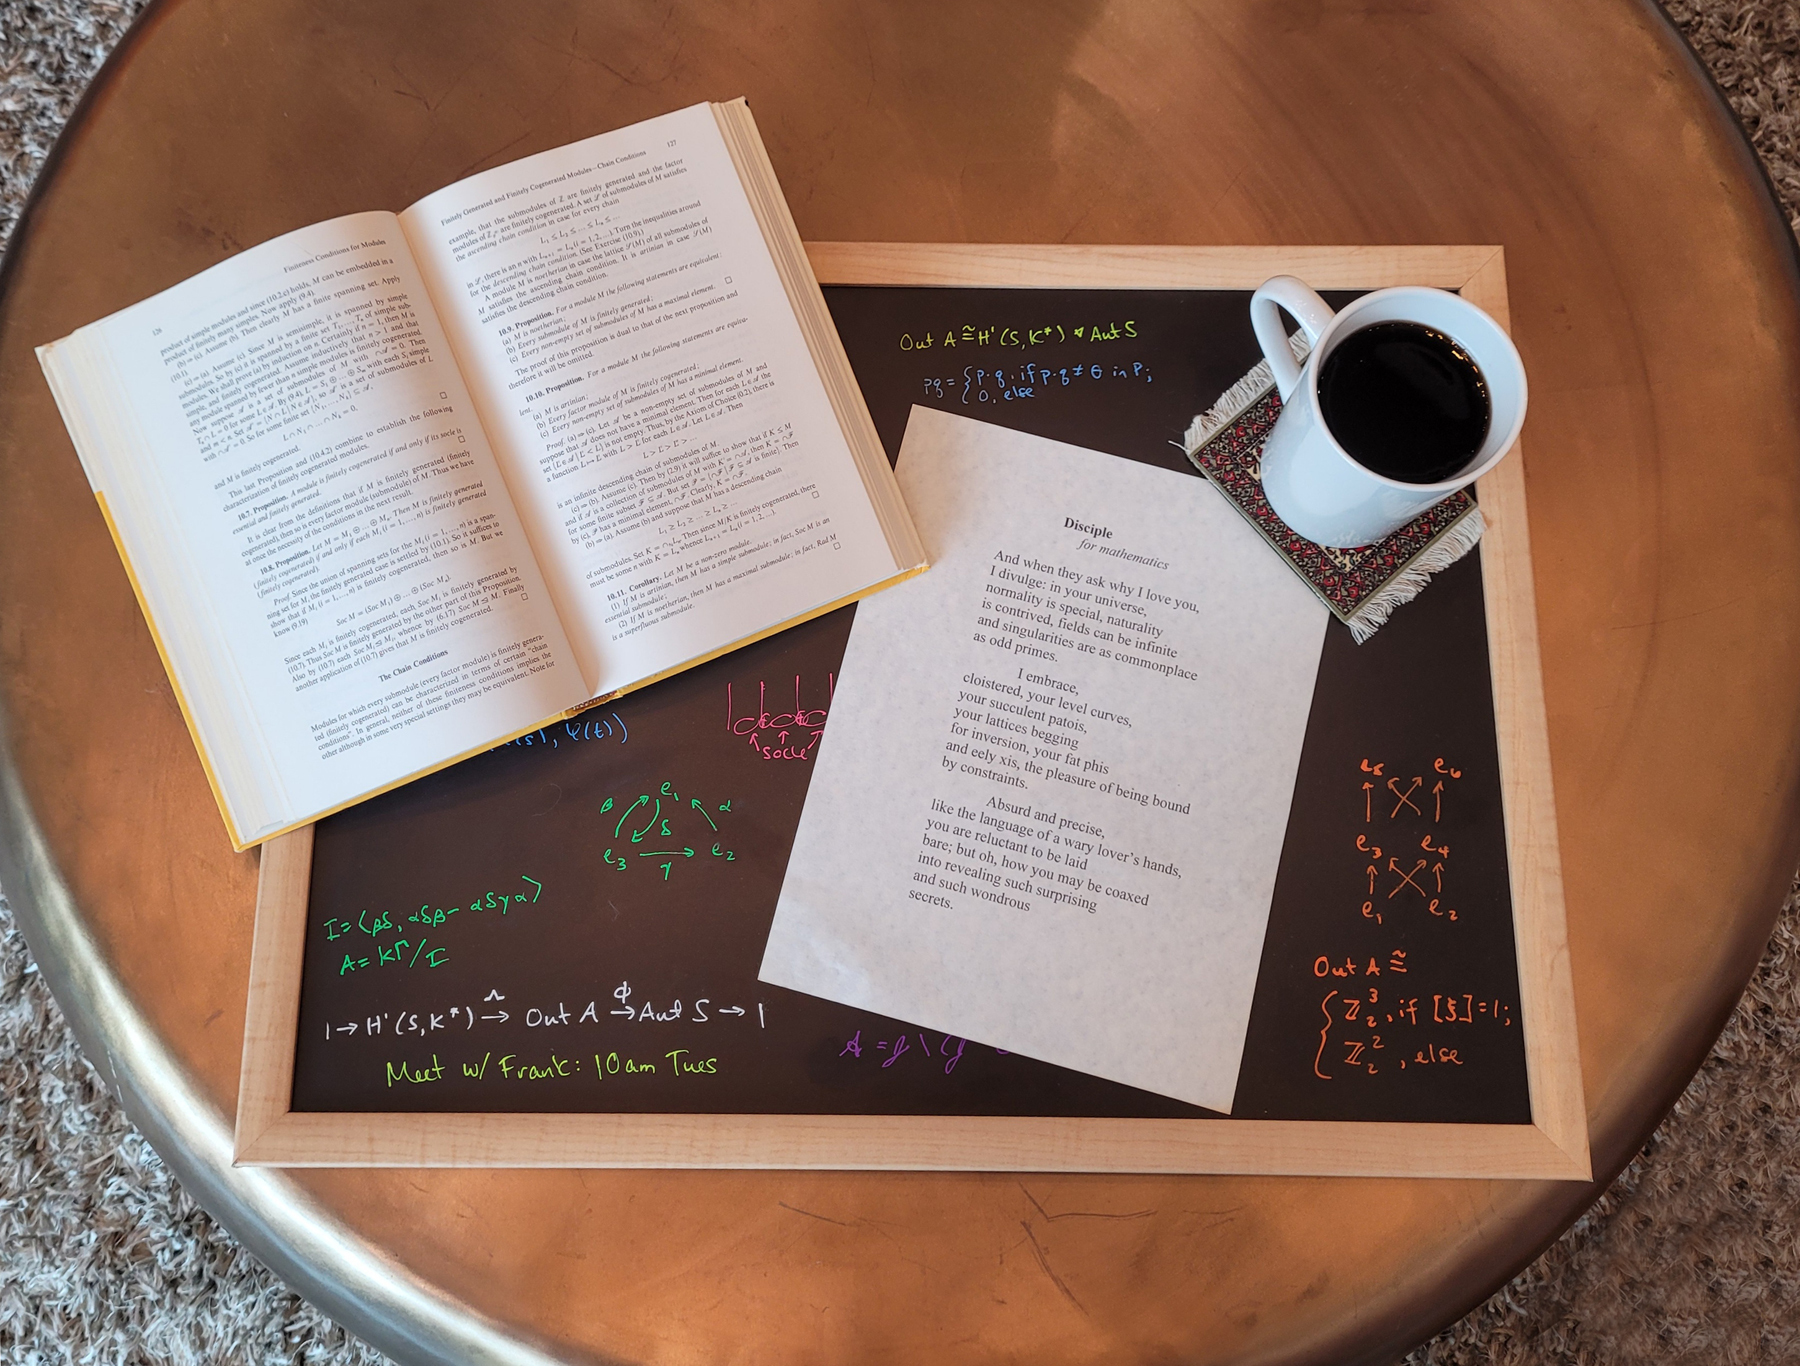 126
Finiteness Conditions for Modules
product of simple modules and since (10.2.c) holds, M can be embedded in a
product of finitely many simples. Now apply (9.4).
(b) ⇒ (c). Assume (b). Then clearly M has a finite spanning set. Apply
(10.1).
(c) ⇒ (a). Assume (c). Since M is semisimple, it is spanned by simple
submodules. So by (c) M is spanned by a finite set T₁, ..., Tₙ of simple sub-
modules. We shall prove (a) by induction on n. Certainly if n = 1, then M is
simple, and finitely cogenerated. Assume inductively that n > 1 and that
any module spanned by fewer than n simple modules is finitely cogenerated.
L ∩ N₁ ∩ ... ∩ Nₖ = 0,
and M is finitely cogenerated. □
This last Proposition and (10.4.2) combine to establish the following
characterization of finitely cogenerated modules.
10.7. Proposition. A module is finitely cogenerated if and only if its socle is
essential and finitely generated. □
It is clear from the definitions that if M is finitely generated (finitely
cogenerated), then so is every factor module (submodule) of M. Thus we have
at once the necessity of the conditions in the next result.
10.8. Proposition. Let M = M₁ ⊕ ... ⊕ Mₙ. Then M is finitely generated
(finitely cogenerated) if and only if each Mᵢ (i = 1, ..., n) is finitely generated
(finitely cogenerated).
Proof. Since the union of spanning sets for the Mᵢ (i = 1, ..., n) is a span-
ning set for M, the finitely generated case is settled by (10.1). So it suffices to
show that if Mᵢ (i = 1, ..., n) is finitely cogenerated, then so is M. But we
know (9.19)
Soc M = (Soc M₁) ⊕ ... ⊕ (Soc Mₙ).
Since each Mᵢ is finitely cogenerated, each Soc Mᵢ is finitely generated by
(10.7). Thus Soc M is finitely generated by the other part of this Proposition.
Also by (10.7) each Soc Mᵢ ⊴ Mᵢ, whence by (6.17) Soc M ⊴ M. Finally
another application of (10.7) gives that M is finitely cogenerated. □
The Chain Conditions
Modules for which every submodule (every factor module) is finitely genera-
ted (finitely cogenerated) can be characterized in terms of certain "chain
conditions". In general, neither of these finiteness conditions implies the
other although in some very special settings they may be equivalent. Note for
Finitely Generated and Finitely Cogenerated Modules—Chain Conditions
127
example, that the submodules of ℤ are finitely generated and the factor
modules of are finitely cogenerated. A set ℒ of submodules of M satisfies
the ascending chain condition in case for every chain
L₁ ≤ L₂ ≤ ... ≤ Lₙ ≤ ...
in ℒ, there is an n with Lₙ₊ᵢ = Lₙ (i = 1, 2, ...). Turn the inequalities around
for the descending chain condition. (See Exercise (10.9).)
A module M is noetherian in case the lattice 𝒮(M) of all submodules of
M satisfies the ascending chain condition. It is artinian in case 𝒮(M)
satisfies the descending chain condition.
10.9. Proposition. For a module M the following statements are equivalent:
(a) M is noetherian;
(b) Every submodule of M is finitely generated;
(c) Every non-empty set of submodules of M has a maximal element. □
The proof of this proposition is dual to that of the next proposition and
therefore it will be omitted.
10.10. Proposition. For a module M the following statements are equiva-
lent.
(a) M is artinian;
(b) Every factor module of M is finitely cogenerated;
(c) Every non-empty set of submodules of M has a minimal element.
Proof. (a) ⇒ (c). Let 𝒜 be a non-empty set of submodules of M and
suppose that 𝒜 does not have a minimal element. Then for each L ∈ 𝒜 the
set {L' ∈ 𝒜 | L' < L} is not empty. Thus, by the Axiom of Choice (0.2), there is
a function L ↦ L' with L > L' for each L ∈ 𝒜. Let L ∈ 𝒜. Then
L > L' > L'' > ...
is an infinite descending chain of submodules of M.
of submodules. Set K = ∩ₙLₙ. Then since M/K is finitely cogenerated, there
must be some n with K = Lₙ, whence Lₙ₊ᵢ = Lₙ (i = 1, 2, ...). □
10.11. Corollary. Let M be a non-zero module.
(1) If M is artinian, then M has a simple submodule; in fact, Soc M is an
essential submodule;
(2) If M is noetherian, then M has a maximal submodule; in fact, Rad M
is a superfluous submodule. □
Out A ≅ H¹(S, K*) ⋊ Aut S
pq = { p·q, if p·q ≠ θ in P;
0, else
(s), Ψ(t))
socle
e₁
β
δ
α
e₃ → e₂
γ
I = ⟨βδ, αδβ - αδγα⟩
A = KΓ/I
1 → H¹(S, K*) →^Λ Out A →^Φ Aut S → 1
Meet w/ Frank: 10am Tues
Disciple
for mathematics
And when they ask why I love you,
I divulge: in your universe,
normality is special, naturality
is contrived, fields can be infinite
and singularities are as commonplace
as odd primes.
I embrace,
cloistered, your level curves,
your succulent patois,
your lattices begging
for inversion, your fat phis
and eely xis, the pleasure of being bound
by constraints.
Absurd and precise,
like the language of a wary lover's hands,
you are reluctant to be laid
bare; but oh, how you may be coaxed
into revealing such surprising
and such wondrous
secrets.
e₅ e₆
e₃ e₄
e₁ e₂
Out A ≅
{ ℤ₂³, if [ξ] = 1;
ℤ₂², else